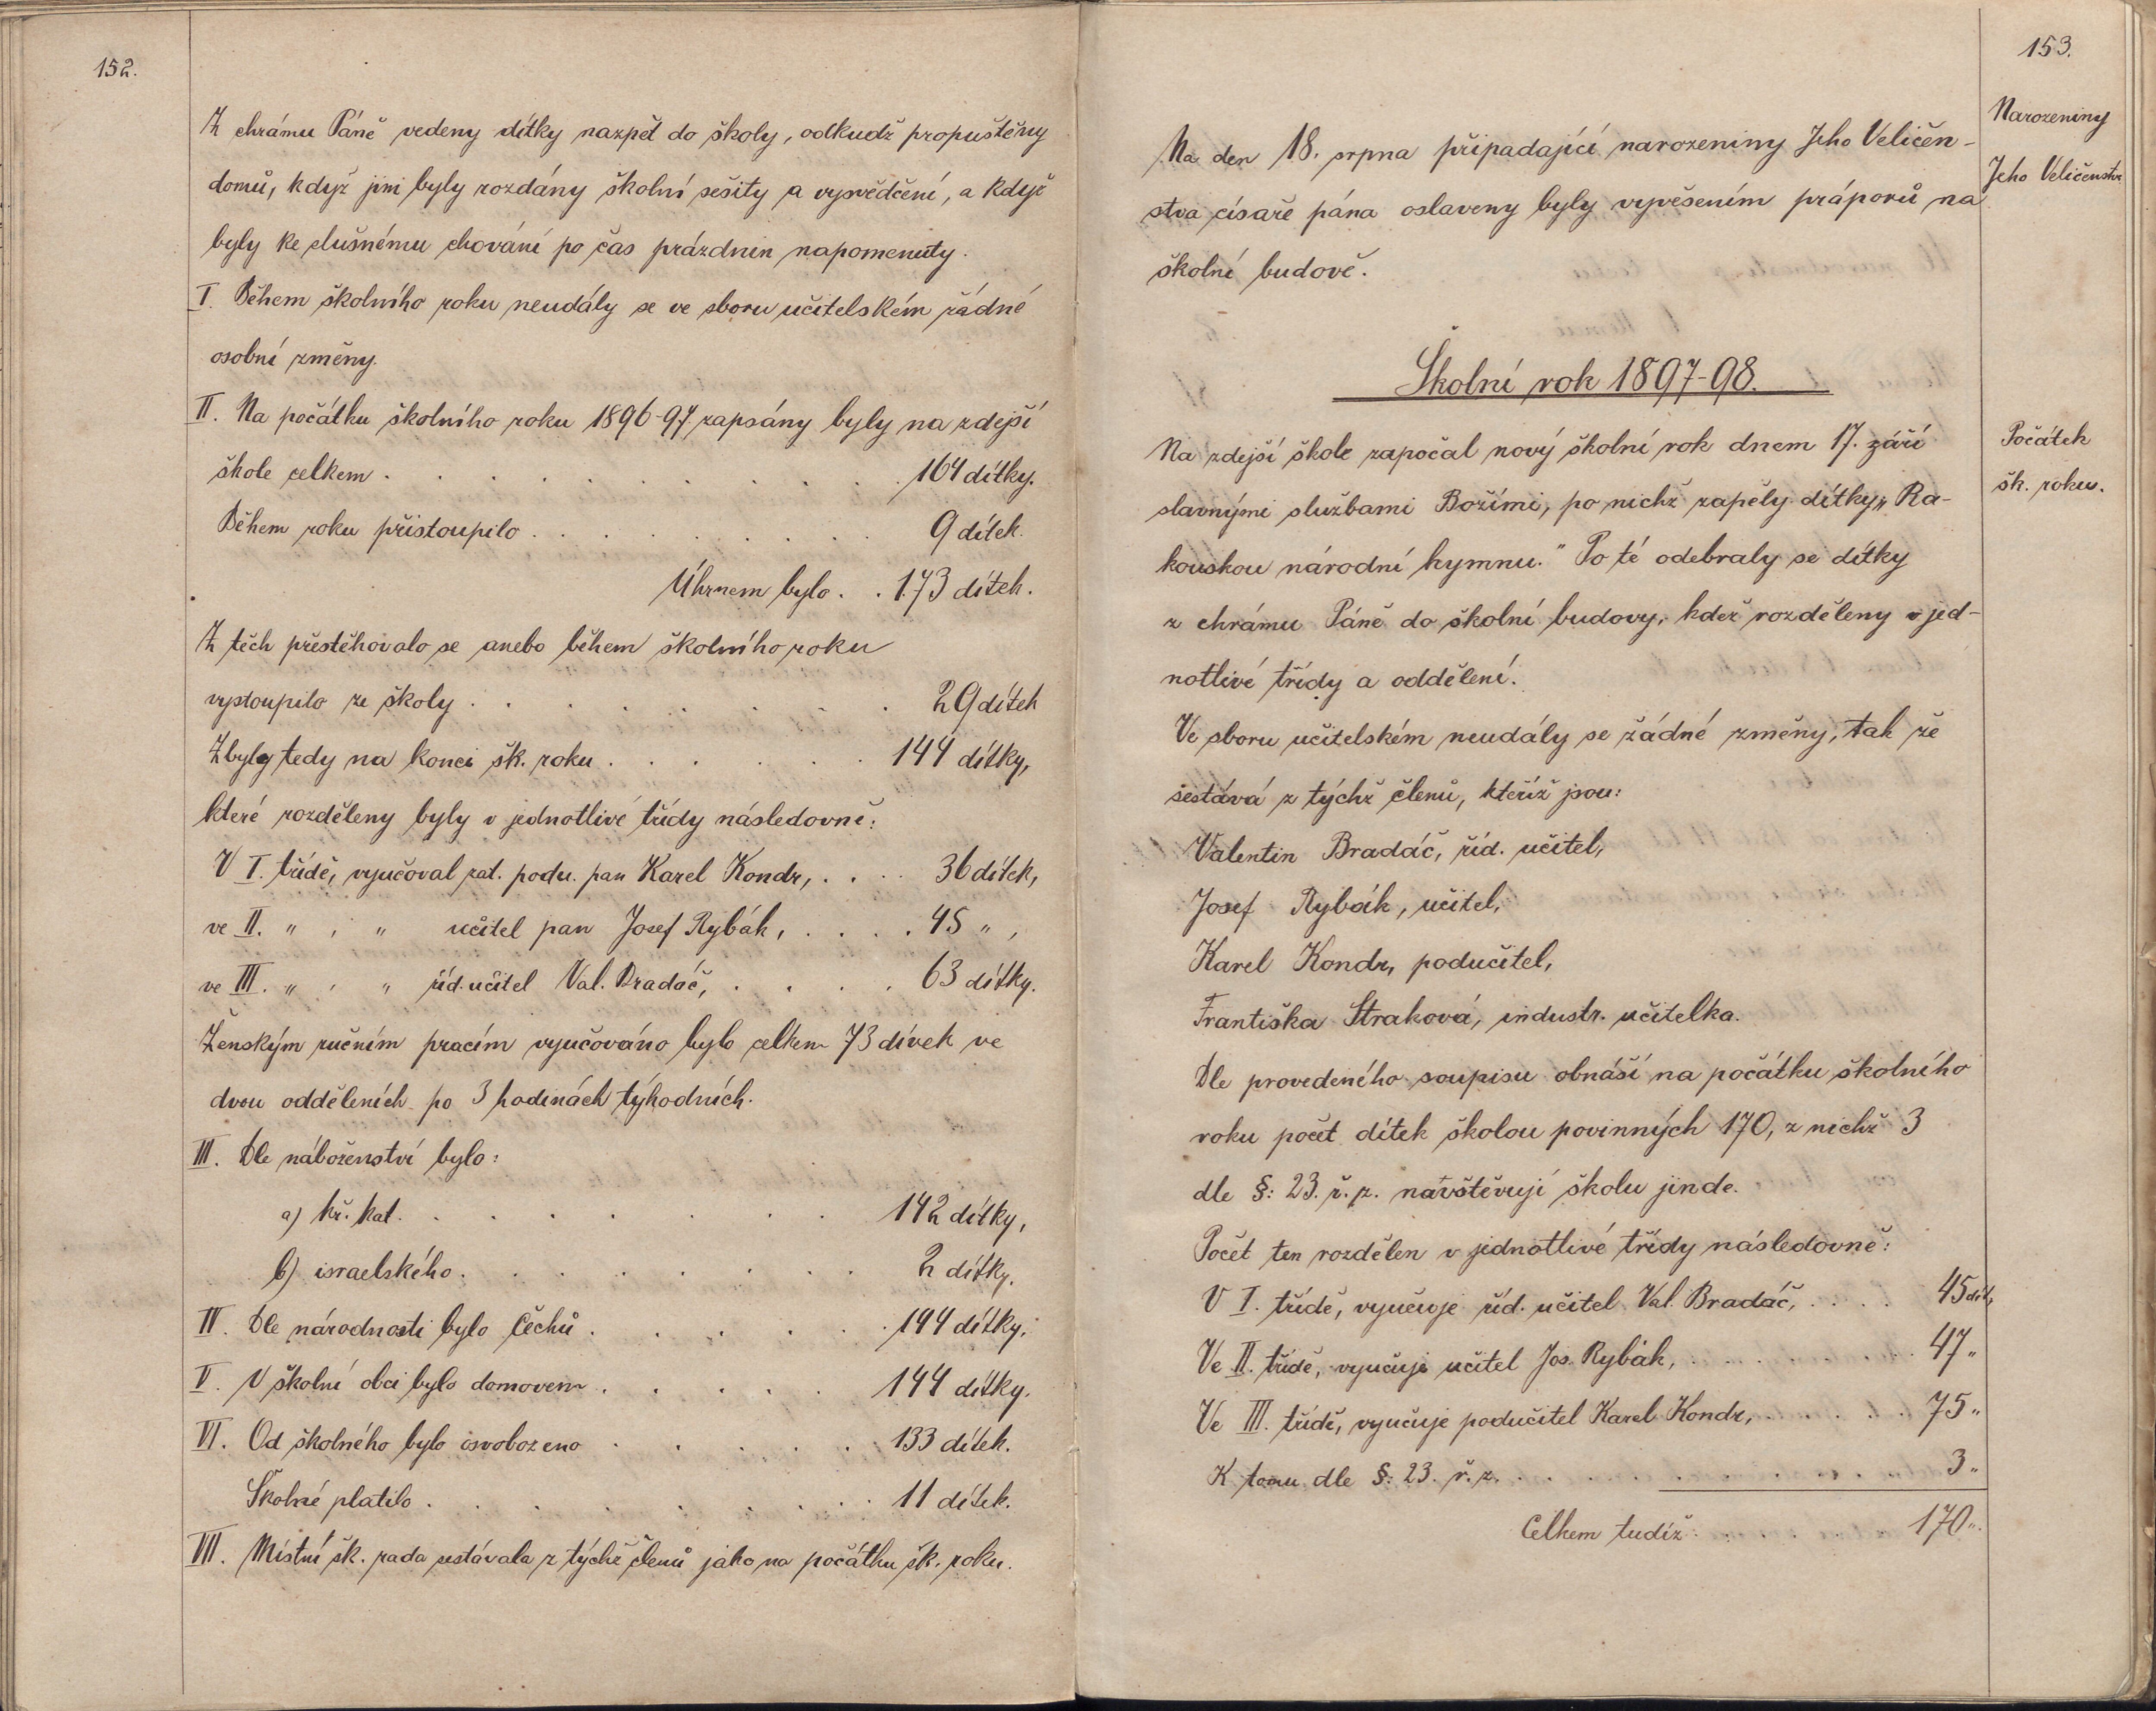 152.
Z chrámu Páně vedeny dítky nazpět do školy, odkudž propuštěny
domů, když jim byly rozdány školní sešity a vysvědčení, a když
byly ke slušnému chování po čas prázdnin napomenuty.
I. Během školního roku neudály se ve sboru učitelském žádné
osobní změny.
II. Na počátku školního roku 1896-97. zapsány byly na zdejší
škole celkem . . . . . . . . . . 164 dítky.
Během roku přistoupilo . . . . . . . . 9 dítek.
Úhrnem bylo . . 173 dítek.
Z těch přestěhovalo se anebo během školního roku
vystoupilo ze školy . . . . . . . . 29 dítek
Zbyly tedy na konci šk. roku . . . . . . 144 dítky,
které rozděleny byly v jednotlivé třídy následovně:
V I. třídě, vyučoval zat. podu. pan Karel Kondr, . . . . 36 dítek,
ve II. " , " učitel pan Josef Rybák, . . . . 45 " ,
ve III. " , " říd. učitel Val. Bradáč, . . . . 63 dítky.
Ženským ručním pracím vyučováno bylo celkem 73 dívek ve
dvou odděleních po 3 hodinách týhodních.
III. Dle náboženství bylo:
a) kř. kat. . . . . . . . . 142 dítky,
b) israelského . . . . . . . . 2 dítky.
IV. Dle národnosti bylo Čechů . . . . . . 144 dítky.
V. V školní obci bylo domovem . . . . . 144 dítky.
VI. Od školného bylo osvobozeno . . . . . 133 dítek.
Školné platilo . . . . . . . . 11 dítek.
VII. Místní šk. rada sestávala z týchž členů jako na počátku šk. roku.
153.
Narozeniny
Jeho Veličenstv.
Na den 18. srpna připadající narozeniny Jeho Veličen-
stva císaře pána oslaveny byly vyvěšením práporů na
školní budově.
Školní rok 1897-98.
Počátek
šk. roku.
Na zdejší škole započal nový školní rok dnem 17. září
slavnými službami Božími, po nichž zapěly dítky „Ra-
kouskou národní hymnu." Po té odebraly se dítky
z chrámu Páně do školní budovy, kdež rozděleny v jed-
notlivé třídy a oddělení.
Ve sboru učitelském neudály se žádné změny, tak že
sestává z týchž členů, kteříž jsou:
Valentin Bradáč, říd. učitel,
Josef Rybák, učitel,
Karel Kondr, podučitel,
Františka Straková, industr. učitelka.
Dle provedeného soupisu obnáší na počátku školního
roku počet dítek školou povinných 170, z nichž 3
dle §: 23. ř. z. navštěvují školu jinde.
Počet ten rozdělen v jednotlivé třídy následovně:
V I. třídě, vyučuje říd. učitel Val. Bradáč, . . . . 45 dít,
Ve II. třídě, vyučuje učitel Jos. Rybák, . . . . . . . 47 "
Ve III. třídě, vyučuje podučitel Karel Kondr, . . . . . . 75 "
K tomu dle §: 23. ř. z. . . . . . . . . . . 3 "
Celkem tudíž: 170 ".